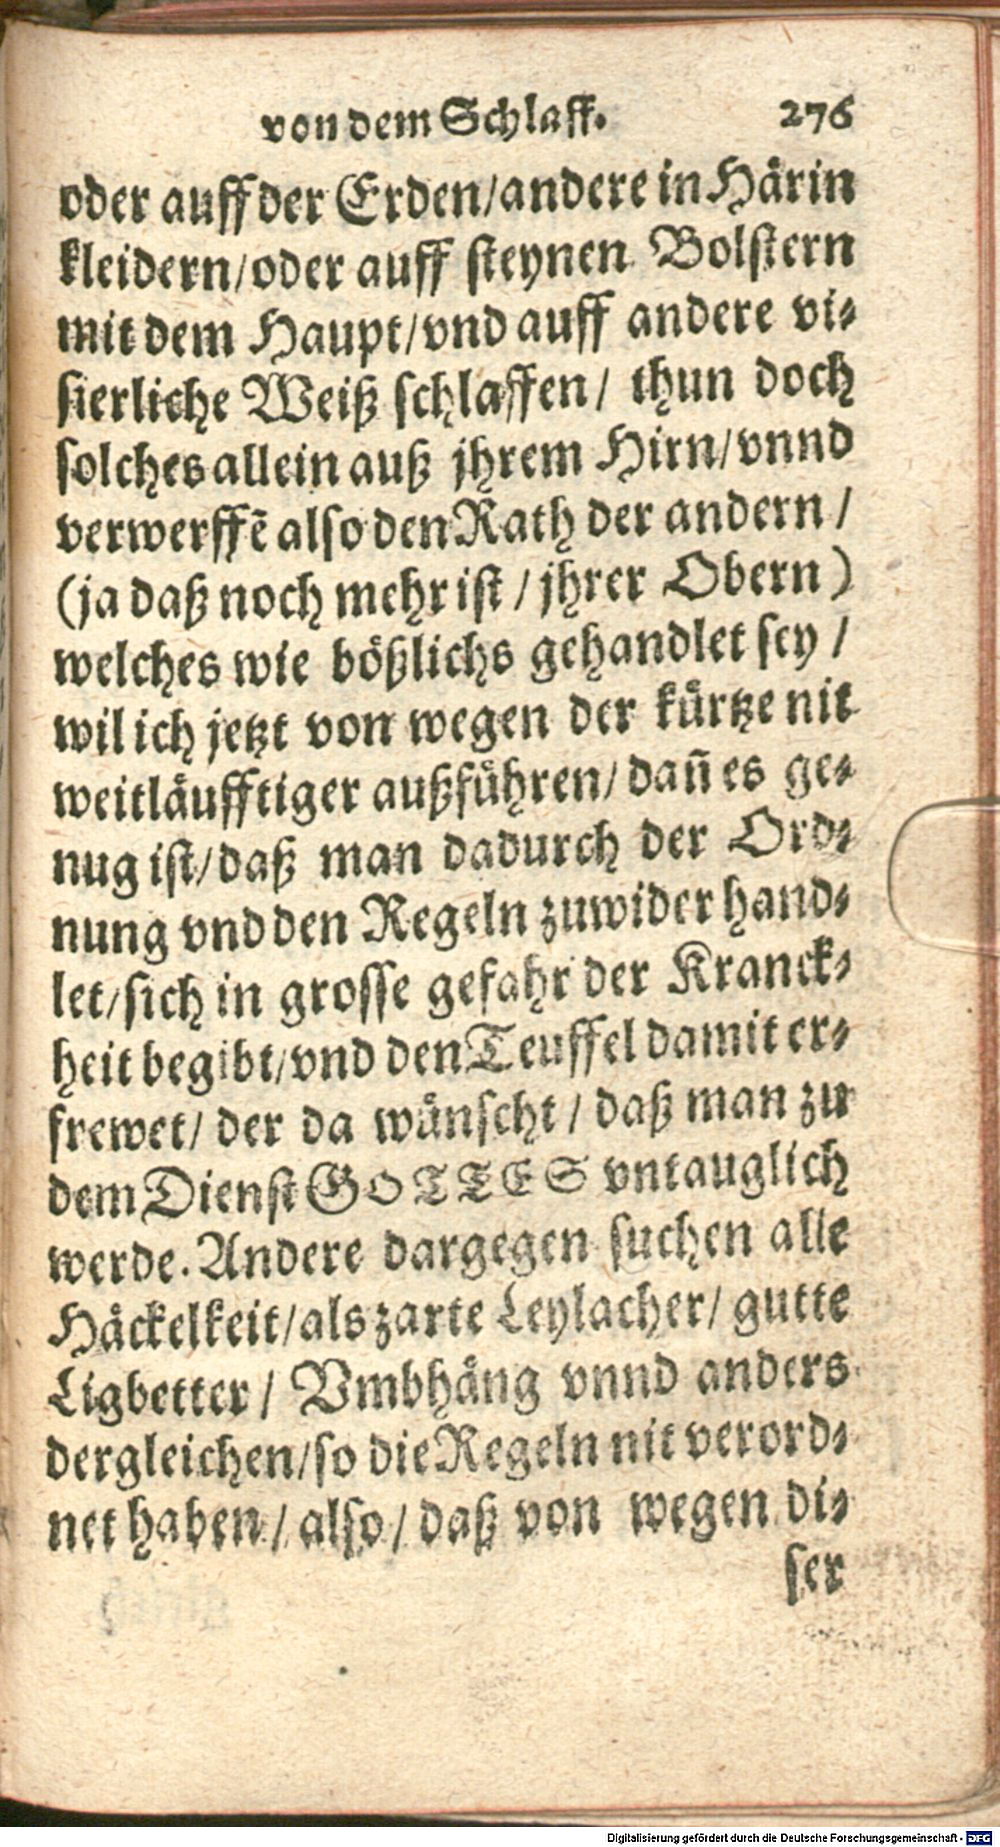 von dem Schlaff. 276
oder auff der Erden/andere in Härin
kleidern/oder auff steynen Bolstern
mit dem Haupt/vnd auff andere vi-
sierliche Weiß schlaffen/ thun doch
solches allein auß jhrem Hirn/vnnd
verwerffẽ also den Rath der andern/
(ja daß noch mehr ist/ jhrer Obern)
welches wie bößlichs gehandlet sey/
wil ich jetzt von wegen der kürtze nit
weitläufftiger außführen/ dañ es ge-
nug ist/daß man dadurch der Ord-
nung vnd den Regeln zuwider hand-
let/sich in grosse gefahr der Kranck-
heit begibt/vnd den Teuffel damit er-
frewet/ der da wünscht/ daß man zu
dem Dienst GOTTES vntauglich
werde. Andere dargegen suchen alle
Häckelkeit/als zarte Leylacher/ gutte
Ligbetter/ Vmbhäng vnnd anders
dergleichen/so die Regeln nit verord-
net haben/ also/ daß von wegen di-
ser
Digitalisierung gefördert durch die Deutsche Forschungsgemeinschaft - DFG